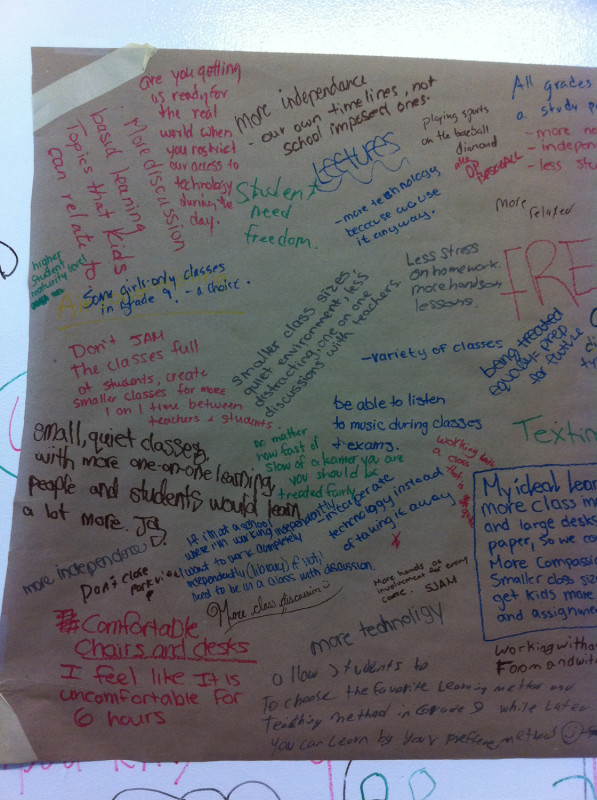 are you getting
us ready for
the real
world when
you restrict
our access to
technology
during the
day.
More discussion
based learning
Topics that kids
can relate to
more independance
- our own timelines, not
school imposed ones.
LECTURES
playing sports
on the baseball
diamond
All grades
a study
- more
- indepen
- less stu
Student
need
freedom.
- more technology
because we use
it anyway.
more
relaxed
higher
student
maturity level
Some girls-only classes
in grade 9. - a choice.
smaller class sizes
quiet environment, less
distracting, one on one
discussions with teachers.
Less stress
on homework.
more hands on
lessons.
FRE
Don't JAM
The classes full
of students, create
smaller classes for more
1 on 1 time between
teachers & students.
- variety of classes
being treated
equally & prep
for future
be able to listen
to music during classes
& exams.
Textin
small, quiet classes,
with more one-on-one learning,
people and students would learn
a lot more.
no matter
how fast of
slow of a learner you are
you should be
treated fairly
- incorperate
technology instead
of taking it away
working
a class
My ideal lear
more class
and large desks
paper, so we co
More Compassio
Smaller class size
get kids more
and assignme
If im at a school
where im working independently
want to work completely
independently (library) if not,
need to be in a class with discussion.
more independence
Don't close
Parkview!
More class discussion
More hands on
involvement in every
course. SJAM
more technoligy
Comfortable
Chairs and desks
I feel like It is
uncomfortable for
6 hours
working witho
Foom and wit
allow students to
To choose the favorite Learning method and
Teaching method in Grade 9 while Later
you can learn by your preffere method